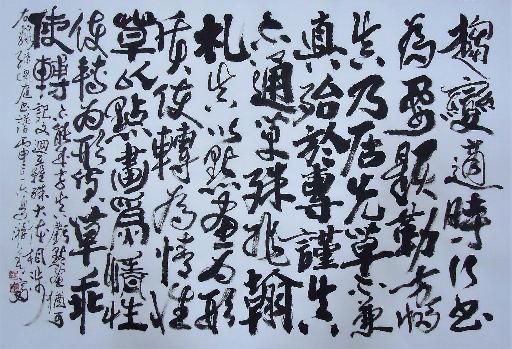 趨變適時行書
為要題勒方幅
真乃居先草不兼
真殆於專謹真
不通草殊非翰
札真以點畫為形
質使轉為情性
草以點畫為情性
使轉為形質草乖
使轉不能成字真虧點畫猶可
記文迴互雖殊大體相涉
右錄孫過庭書譜丙申